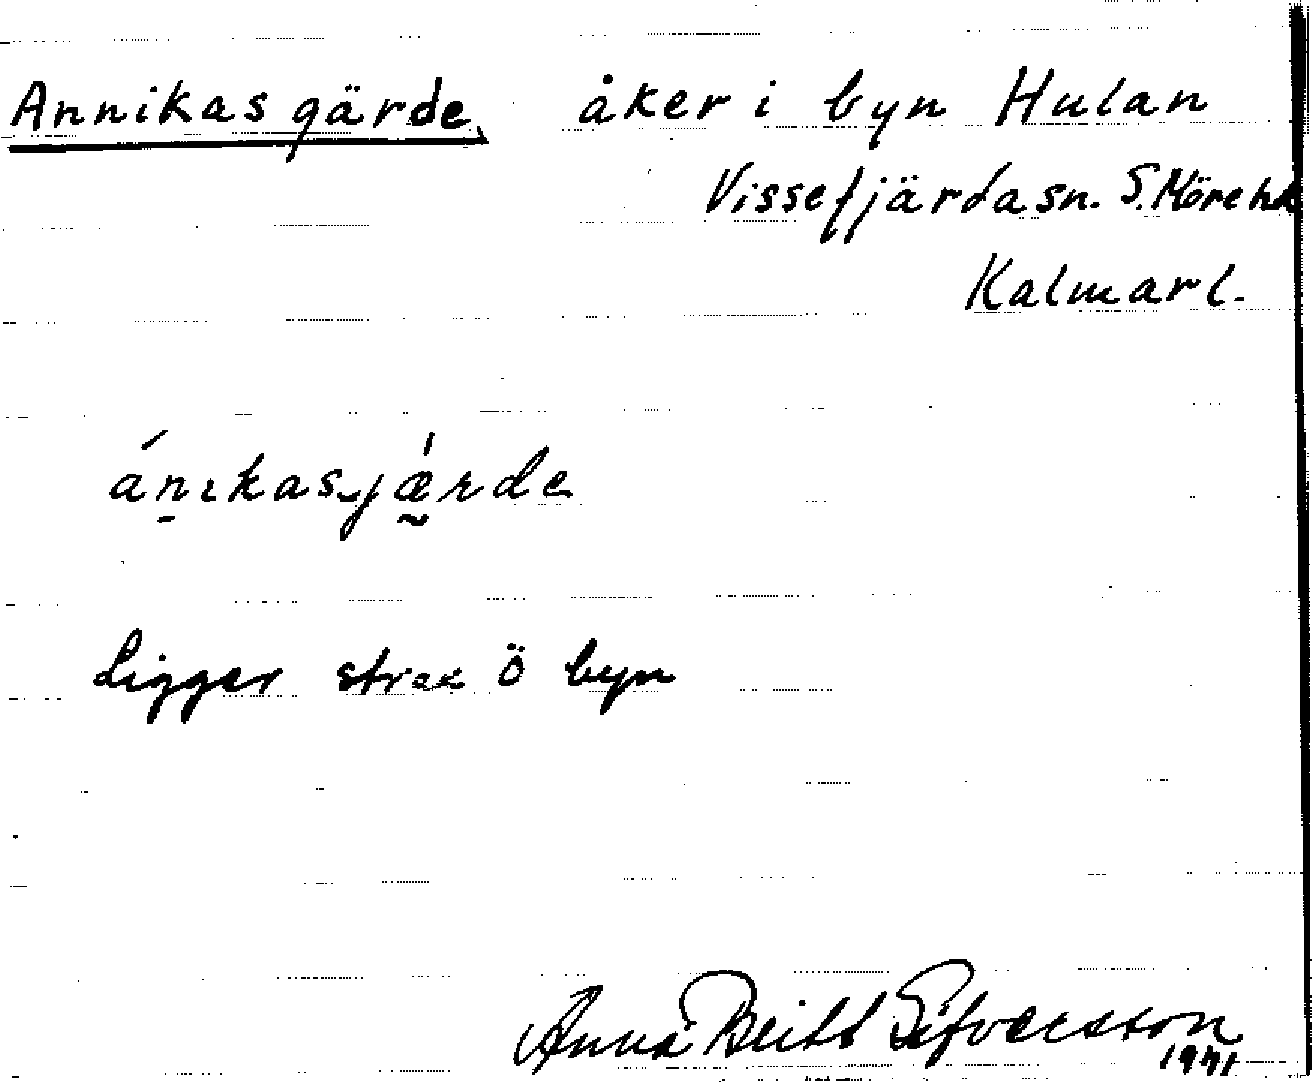 Annikas gärde, åker i byn Hulan
Vissefjärda sn. S. Möre hd
Kalmar l.
ánıkasjǽrde
Ligger strax ö byn
Anna Britt Sifversson
1941